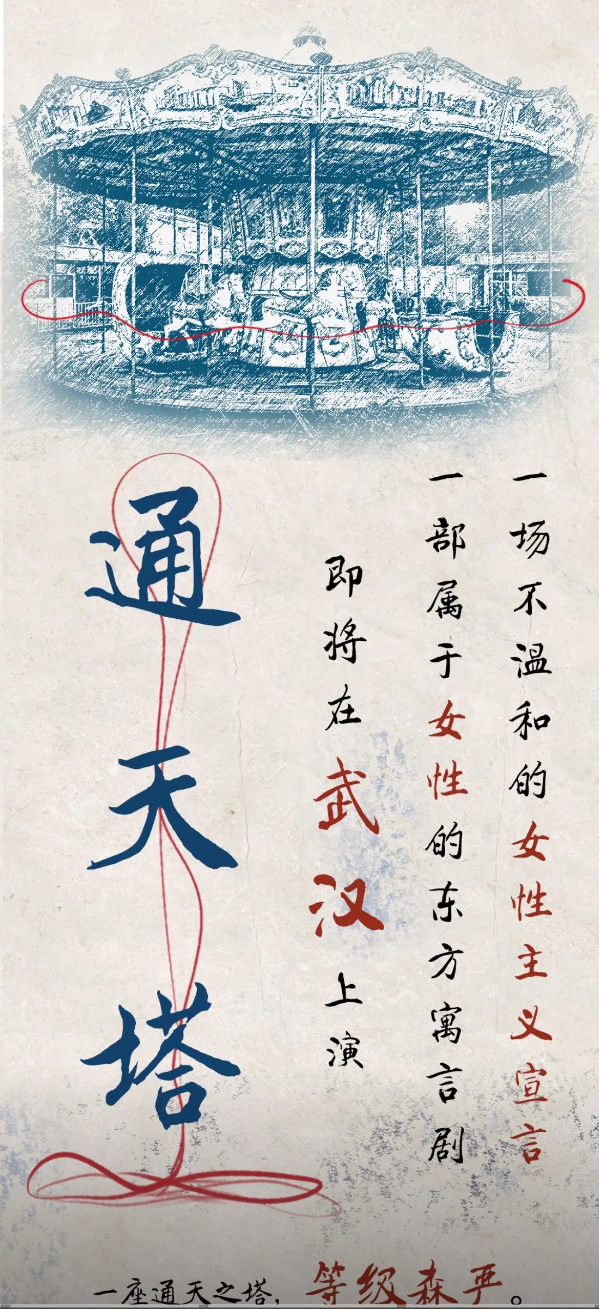 一场不温和的女性主义宣言
一部属于女性的东方寓言剧
即将在武汉上演
通天塔
一座通天之塔，等级森严。